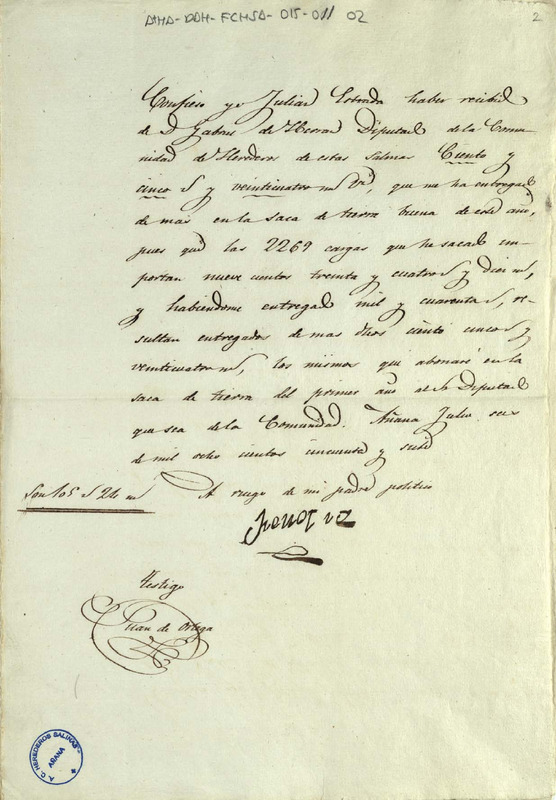 ATHA-DAH-FCHSA-015-011 02
2
Confieso yo Julian Lobrada haber recibido
de D Gabriel de Herran Diputado de la Comu-
nidad de Herederos de estas Salinas Ciento y
cinco s y veinticuatro ms vn, que me ha entregado
de mas en la saca de tierra buena de este año,
pues que las 2269 cargas que ha sacado im-
portan nueve cientos treinta y cuatro s y diez ms,
y habiendome entregado mil y cuarenta s, re-
sultan entregados de mas dhos ciento cinco s y
veinticuatro ms, los mismos que abonaré en la
saca de tierra del primer año al Sr Diputado
que sea de la Comunidad. Añana Julio seis
de mil ocho cientos cincuenta y
Son 105 s 24 ms
A ruego de mi padre politico
Testigo
Juan de Ortega
A.C. HEREDEROS SALINAS
AÑANA